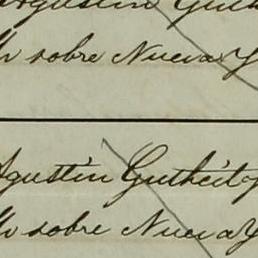 Agustin Guth
sobre Nueva Y
Agustin Gutheil y
sobre Nueva Y